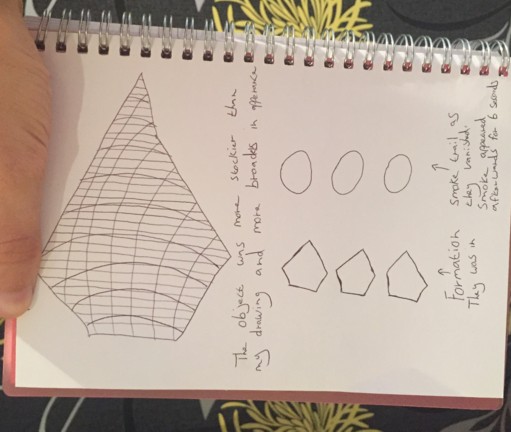 The object was more stockier than
my drawing and more broader in apperence
↑
Formation
They was in
↑
smoke trail as
they vanished.
Smoke appeared
afterwards for 6 seconds